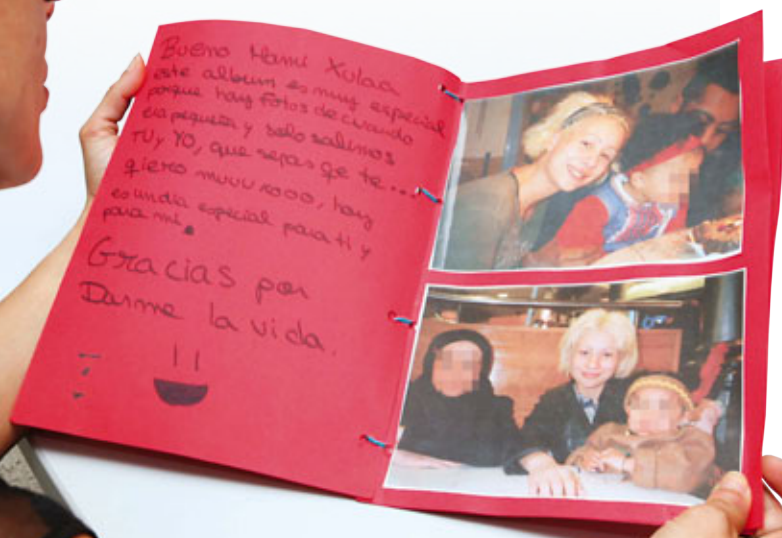 Bueno Mami Xulaa
este album es muy especial
porque hay fotos de cuando
era pequeña y solo salimos
TU y YO, que sepas qe te...
qiero muuuxooo, hoy
es un dia especial para ti y
para mi.
Gracias por
Darme la vida.